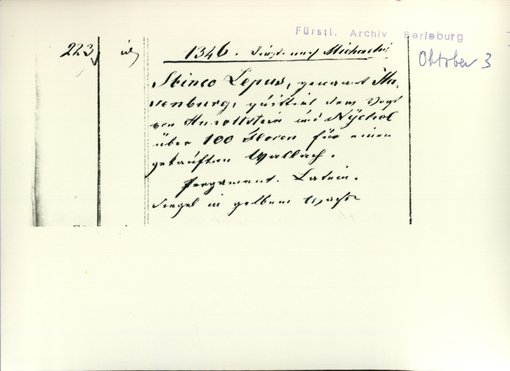 Fürstl. Archiv Berleburg
Oktober 3
223
1346. Dienst. nach Michaelis
Stinco Lepus, genannt
venburg, quittirt dem Vogt
von und
über 100 Floren für einen
gekauften Wallach.
Pergament. Latein.
Siegel in gelbem Wachs